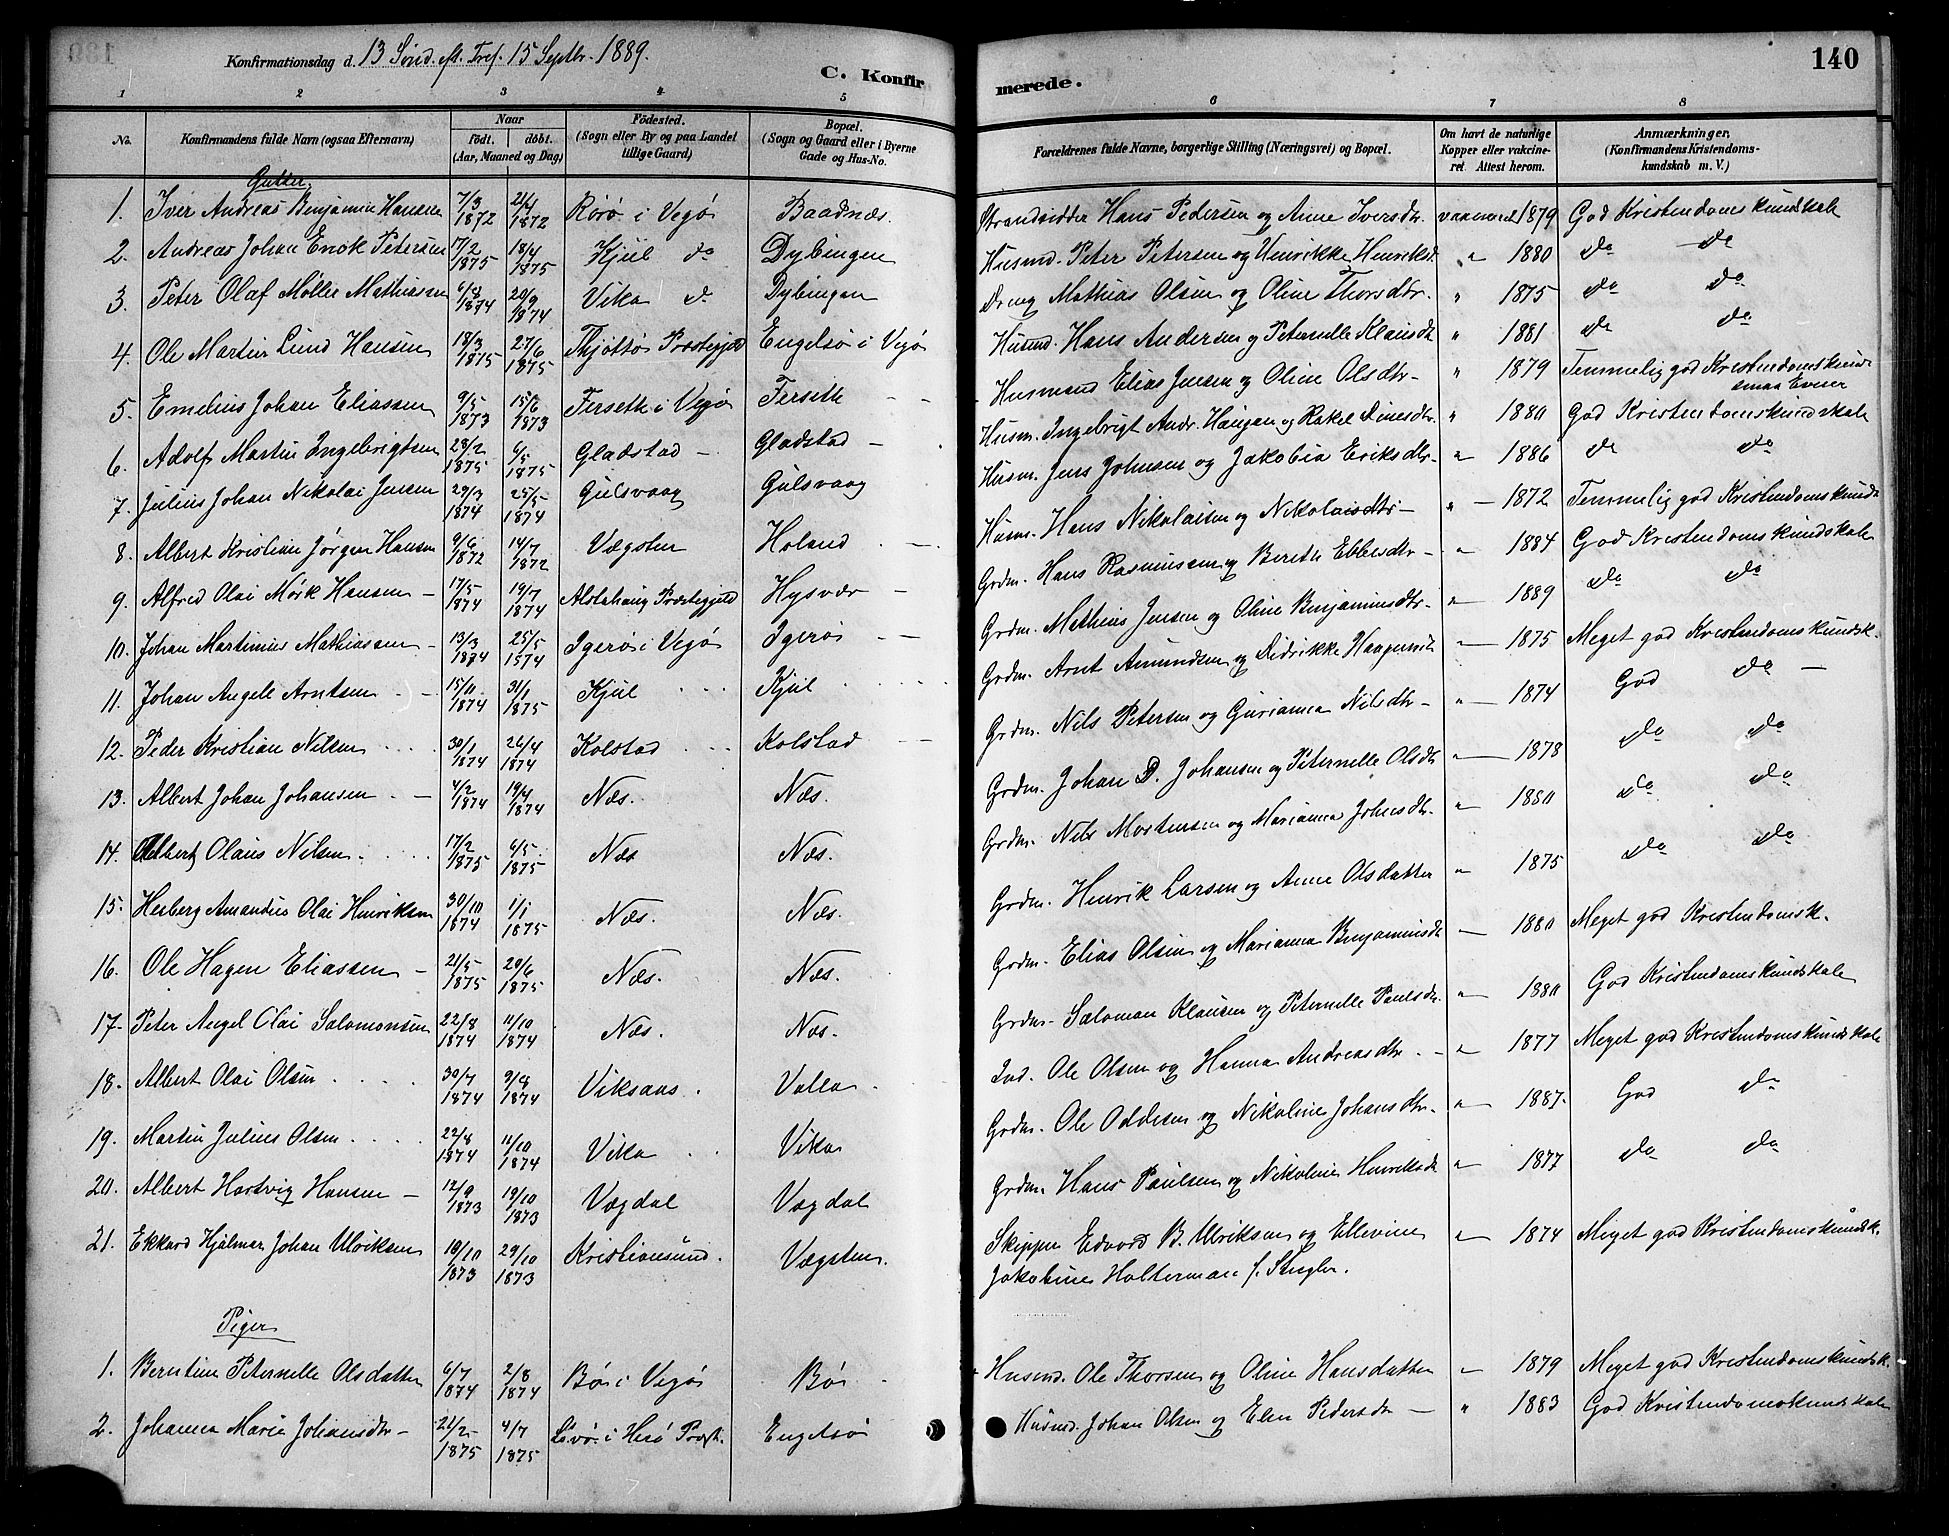 Konfirmationsdag d. 13 Sønd. eft. Tref. 15 Septbr. 1889.
C. Konfir
merede.
140
1 2 3 4 5 6 7 8
No.
Konfirmandens fulde Navn (ogsaa Efternavn)
Naar
født. døbt.
(Aar, Maaned og Dag)
Födested.
(Sogn eller By og paa Landet
tillige Gaard)
Bopæl.
(Sogn og Gaard eller i Byerne
Gade og Hus-No.
Forældrenes fulde Navne, borgerlige Stilling (Næringsvei) og Bopæl.
Om havt de naturlige
Kopper eller vakcine-
ret. Attest herom.
Anmærkninger.
(Konfirmandens Kristendoms-
kundskab m. V.)
Gutter
1. Iver Andreas Benjamin Hansen 7/3 1872 21/4 1872 Rørø i Vegø Baadnæs. Strandsidder Hans Pedersen og Anne Iversdtr. 1879 God Kristendomskundskab
2. Andreas Johan Enok Petersen 17/2 1875 18/4 1875 Kjul do Dybingen Husmd. Peter Petersen og Henrikke Henriksd. " 1880 do do
3. Peter Olaf Møller Mathiassen 6/8 1874 20/9 1874 Vika do Dybingen Dreng Mathias Olsen og Oline Thorsdtr. " 1875 do do
4. Ole Martin Lund Hansen 18/3 1875 27/6 1875 Thjøttø Præstegjeld Engelsø i Vegø Husmd. Hans Andersen og Peternelle Klausdt " 1881 do do
5. Emelius Johan Eliassen 9/5 1873 15/6 1873 Ferseth i Vegø Ferseth - - Husmand Elias Jensen og Oline Olsdtr - " 1879 Temmelig god Kristendomskunds smaa Evner
6. Adolf Martin Ingebrigtsen 28/2 1875 6/5 1875 Gladstad - Gladstad - Husm. Ingebrigt Andr. Haugan og Rakel Dinesdtr. " 1880 God Kristendomskundskab
7. Julius Johan Nikolai Jensen 29/3 1874 25/5 1874 Gulsvaag Gulsvaag Husm. Jens Johnsen og Jakobia Eriksdtr - " 1886 do do
8. Albert Kristian Jørgen Hansen 9/6 1872 14/7 1872 Vægsten Holand - Husm. Hans Nikolaisen og Nikolaisdtr - " - 1872 Temmelig god Kristendomskunds
9. Alfred Olai Mørk Hansen - 17/5 1874 19/7 1874 Alstahaug Præstegjeld Hysvær - Grdm. Hans Rasmussen og Berethe Ebbesdtr - " 1884 God Kristendomskundskab
10. Johan Martinus Mathiassen - 13/3 1874 25/5 1574 Igerø i Vegø Igerø - Grdm. Mathias Jensen og Oline Benjaminsdtr - " 1889 do do
11. Johan Angell Arntsen - 15/11 1874 31/1 1875 Kjul Kjul Grdm. Arnt Amundsen og Didrikke - 1875 Meget god Kristendomskundsk.
12. Peder Kristian Nilsen 30/1 1874 26/4 1874 Kolstad Kolstad - Grdm. Nils Petersen og Gurianna Nilsdtr - " 1874 God do -
13. Albert Johan Johansen - 4/2 1874 19/4 1874 Næs. Næs. Grdm. Johan D. Johansen og Peternelle Olsdtr " 1878 do do
14. Albert Olaus Nilsen 17/2 1875 6/5 1875 Næs Næs. Grdm. Nils Mortensen og Marianna Johnsdtr. " 1880 do do
15. Herberg Amandus Olai Henriksen 30/10 1874 1/1 1875 Næs. Næs. Grdm. Henrik Larsen og Anne Olsdatter " 1875 do do
16. Ole Hagen Eliassen - 21/5 1875 20/6 1875 Næs. Næs. Grdm. Elias Olsen og Marianna Benjaminsdt - 1880 Meget god Kristendomsk.
17. Peter Angel Olai Salomonsen 22/8 1874 11/10 1874 Næs. Næs. Grdm. Salomon Klausen og Peternelle Paulsdtr. " 1880 God Kristendomskundskab
18. Albert Olai Olsen 30/7 1874 9/8 1874 Viksaas. Valla Ind. Ole Olsen og Hanna Andreasdtr. - " 1877 Meget god Kristendomskundskab
19. Martin Julius Olsen 22/8 1874 11/10 1874 Vika Vika Grdm. Ole Oddesen og Nikoline Johansdtr. " 1887. God do
20. Albert Hartvig Hansen - 12/9 1873 19/10 1873 Vægdal Vægdal Grdm. Hans Paulsen og Nikoline Henriksdt " 1877 do do
21. Ekkard Hjalmar Johan Ulriksen 18/10 1873 29/10 1873 Kristiansund. Vægsten. Skipper Edvard B. Ulriksen og Ellevine " 1874 Meget god Kristendomskundsk.
Jakobine Holterman f. Stegler.
Piger
1. Berntine Peternelle Olsdatter 6/7 1874 2/8 1874 Bø i Vegø Bø Husmd. Ole Thorsen og Oline Hansdatter " 1879 Meget god Kristendomskundsk.
2. Johanna Marie Johansdtr - 22/2 1875 4/7 1875 Løvø i Herø Præst. Engelsø Husmd. Johan Olsen og Elen Pedersdtr - " 1883 God Kristendomskundskab